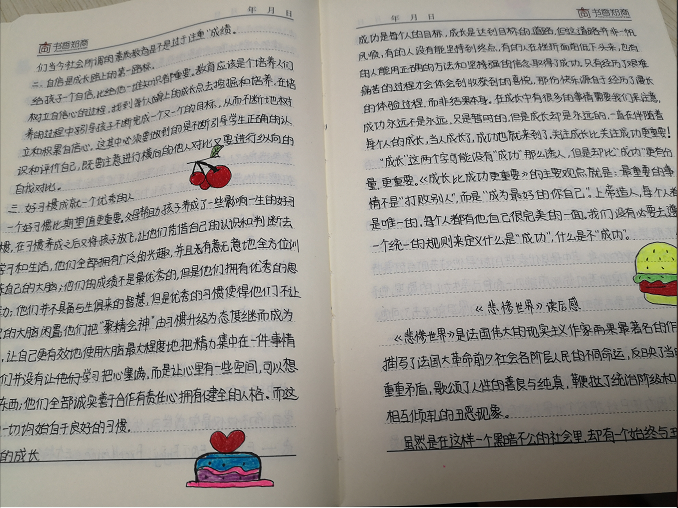 书香知裔
年 月 日
们当今社会所谓的素质教育是不是过于注重"成绩。
二.自信是成长路上的第一路标。
给孩子一个自信,比给他一些知识看重要。教育应该是个培养人们
树立自信心的过程。找到每个人身上的成长点去挖掘和培养,在培
养的过程中要引导孩子不断完成一个又一个的目标,从而不断地树
立和积累自信心。这其中必须要做到的是不断引导学生正确的认
识和评价自己,既要注意进行横向的他人对比,又要进行纵向的
自我对比。
三.好习惯成就一个优秀的人
一个好习惯比期望值更重要。父母帮助孩子养成了一些影响一生的好习
惯,在习惯养成之后又将孩子放飞,让他们凭借自己的认识和判断去
学习和生活,他们全部拥有广泛的兴趣,并且有意无意地全方位训
练自己的大脑;他们的成绩不是最优秀的,但是他们拥有优秀的思
力;他们并不具备与生俱来的智慧,但是优秀的习惯使得他们不让
的大脑闲置。他们把"聚精会神"由习惯升级为态度继而成为
,让自己更有效地使用大脑最大程度地把精力集中在一件事情
们并没有让他们学习把心塞满,而是让心里有一些空间,可以想
东西;他们全部诚实善于合作有责任心拥有健全的人格。而这
一切均始于良好的习惯。
的成长
年 月 日
书香知裔
成功是每个人的目标,成长是达到目标的道路,但这道路并非一帆
风顺,有的人没有能坚持到终点,有的人在挫折面前低下头来,也有
的人能用正确的方法和坚强的信念取得了成功。只有经历了艰难
痛苦的过程才会体会到收获到的喜悦,那份快乐源自于经历了漫长
的体验过程,而非结果本身。在成长中有很多的事情需要我们来注意,
成功永远不是永远,只是暂时的,但是成长却是永远的,一直在伴随着
每个人的成长,当人成长了,成功也就来到了,关注成长比关注成功更重要!
"成长"这两个字可能没有"成功"那么诱人,但是却比"成功"更有分
量,更重要。《成长比成功更重要》的主要观点就是:最重要的事
情不是"打败别人",而是"成为最好的你自己"。上帝造人,每个人都
是唯一的,每个人都有他自己很完美的一面,我们没有必要去遵
一个统一的规则来定义什么是"成功",什么是不"成功"。
《悲惨世界》读后感
《悲惨世界》是法国伟大的现实主义作家雨果最著名的作
描写了法国大革命前夕社会各阶层人民的不同命运,反映了当
重重矛盾,歌颂了人性的善良与纯真,鞭挞了统治阶级和
相互倾轧的丑恶现象。
虽然是在这样一个黑暗不公的社会里,却有一个始终与